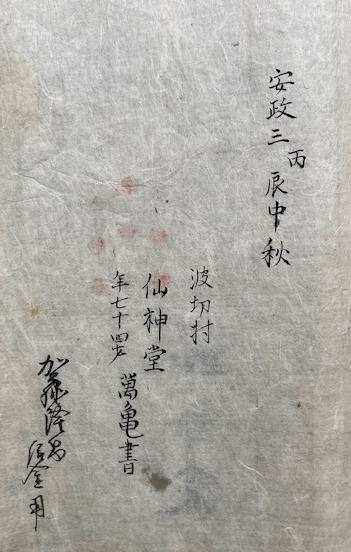 安政三丙辰中秋
波切村
仙神堂
年七十四才
萬亀書
加藤